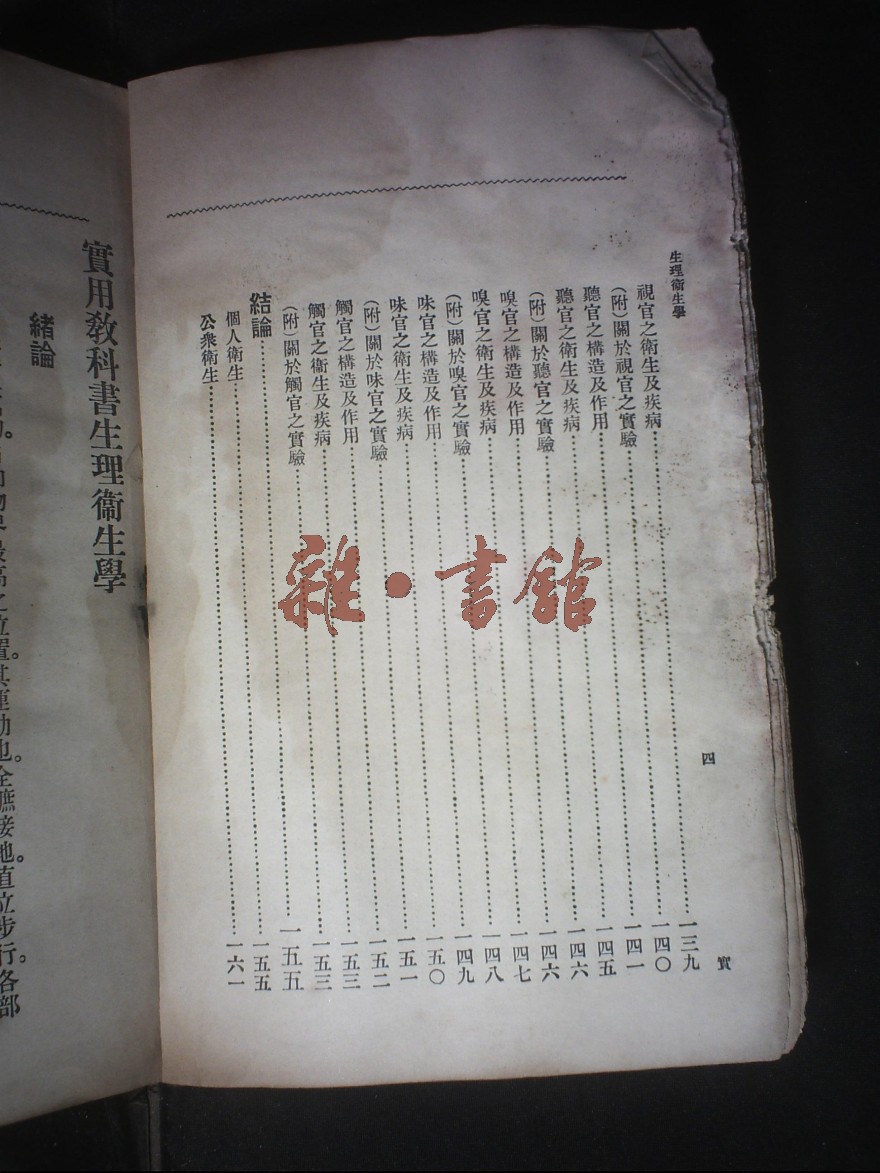 生理衛生學
四
實
視官之衛生及疾病……一三九
(附)關於視官之實驗……一四〇
聽官之構造及作用……一四一
聽官之衛生及疾病……一四五
(附)關於聽官之實驗……一四六
嗅官之構造及作用……一四六
嗅官之衛生及疾病……一四七
(附)關於嗅官之實驗……一四八
味官之構造及作用……一四九
味官之衛生及疾病……一五〇
(附)關於味官之實驗……一五一
觸官之構造及作用……一五二
觸官之衛生及疾病……一五三
(附)關於觸官之實驗……一五三
結論……一五五
個人衛生……一五五
公衆衛生……一六一
雜·書館
實用教科書生理衛生學
緒論
最高之位置。其運動也。全蹠接地。直立步行。各部